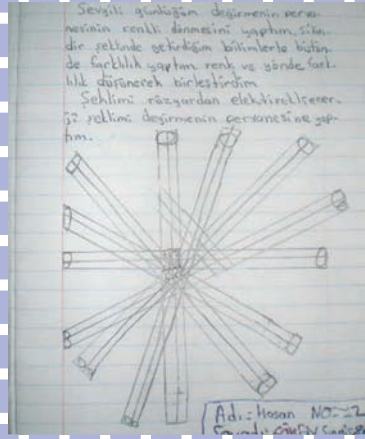 Sevgili günlüğüm değirmenin perva-
nesinin renkli dönmesini yaptım. silin-
dir şeklinde getirdiğim bilimlerle bütün-
de farklılık yaptım renk ve yönde fark-
lılık düşünerek birleştirdim
Şeklimi rüzgardan elektirek
şeklimi değirmenin pervanesine yap-
tım.
Adı: Hasan NO: